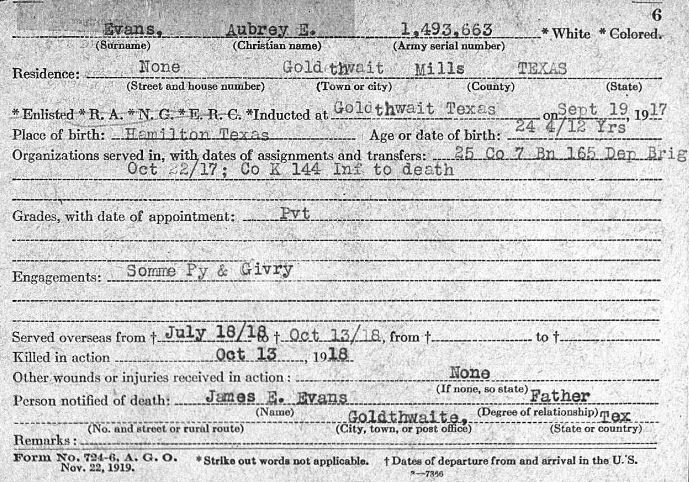 6
Evans, Aubrey E. 1,493,663 * White * Colored.
(Surname) (Christian name) (Army serial number)
Residence: None Goldthwait Mills TEXAS
(Street and house number) (Town or city) (County) (State)
* Enlisted * R. A. * N. G. * E. R. C. * Inducted at Goldthwait Texas on Sept 19, 1917
Place of birth: Hamilton Texas Age or date of birth: 24 4/12 Yrs
Organizations served in, with dates of assignments and transfers: 25 Co 7 Bn 165 Dep Brig
Oct 22/17; Co K 144 Inf to death
Grades, with date of appointment: Pvt
Engagements: Somme Py & Givry
Served overseas from † July 18/18 to † Oct 13/18, from † to †
Killed in action Oct 13, 1918.
Other wounds or injuries received in action: None
(If none, so state)
Person notified of death: James E. Evans Father
(Name) (Degree of relationship)
Goldthwaite, Tex
(No. and street or rural route) (City, town, or post office) (State or country)
Remarks:
Form No. 724-6, A. G. O. * Strike out words not applicable. † Dates of departure from and arrival in the U. S.
Nov. 22, 1919. 3—7366